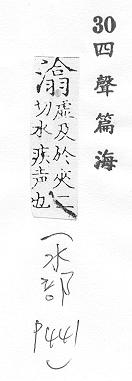 30四聲篇海
潝虛及於夾二
切水疾声也
(水部 P441)